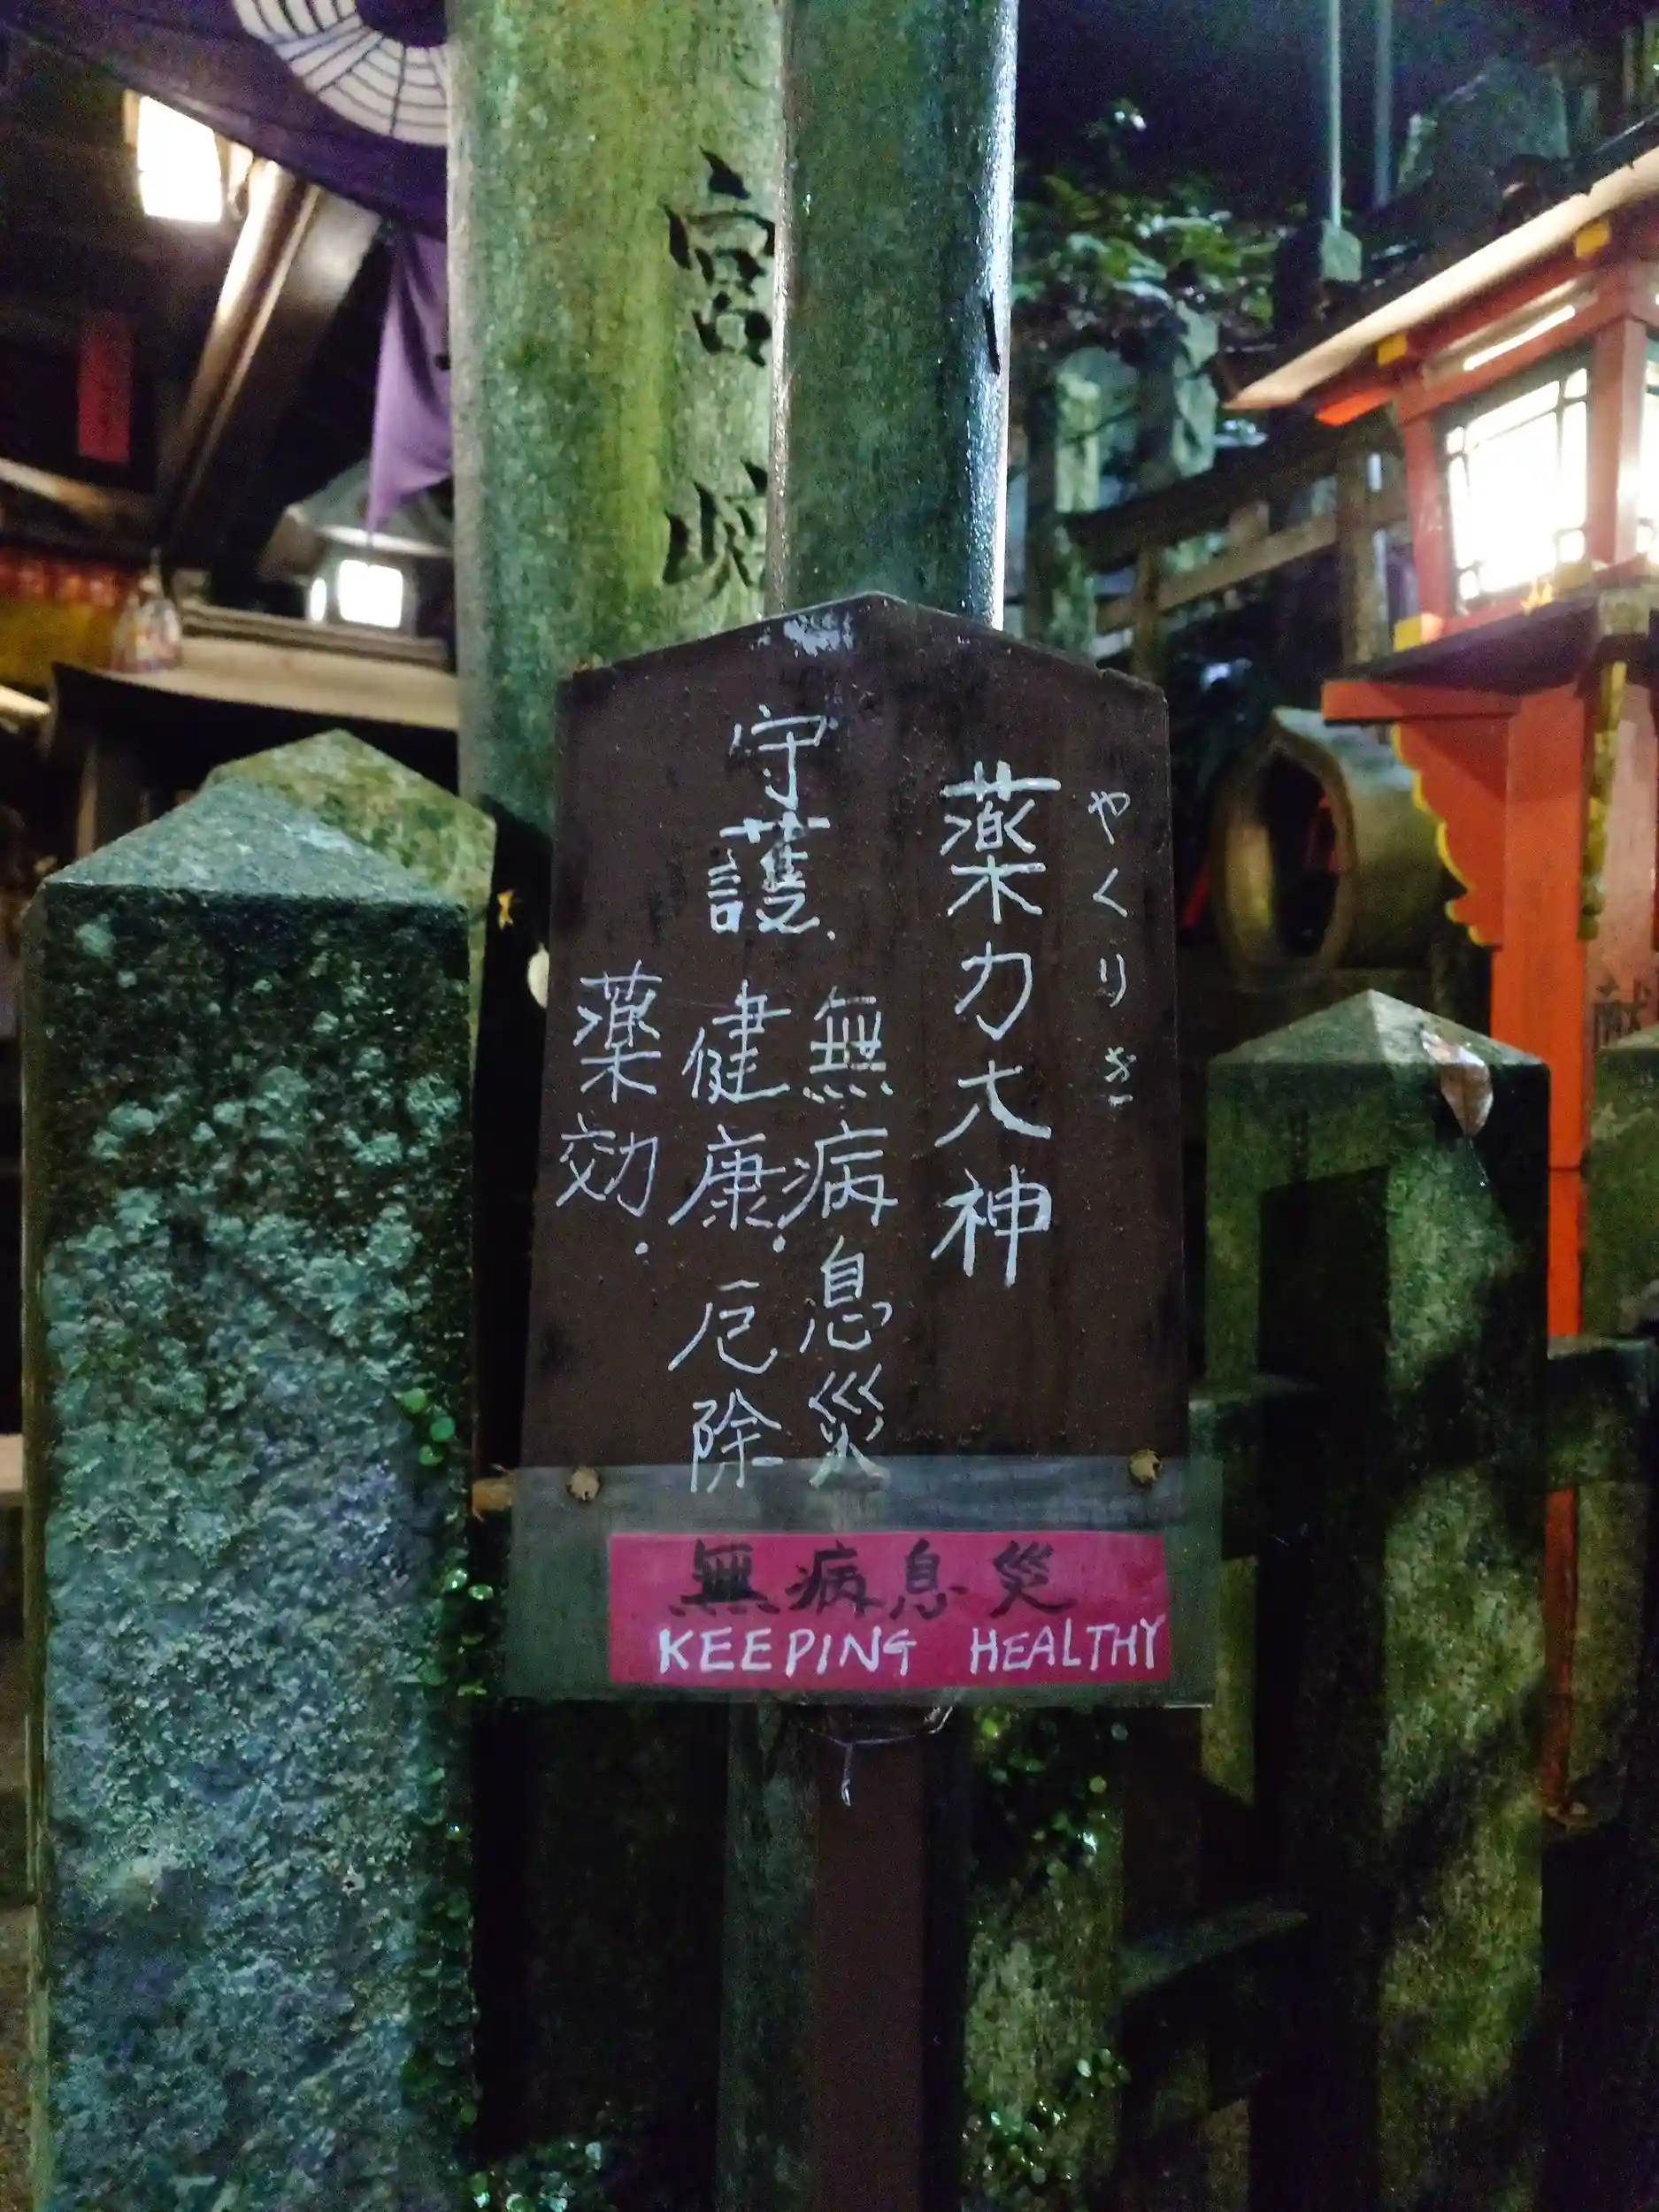 やくりき
薬力大神
守護
無病息災
健康・厄除
薬効・
無病息災
KEEPING HEALTHY
宮崎
献